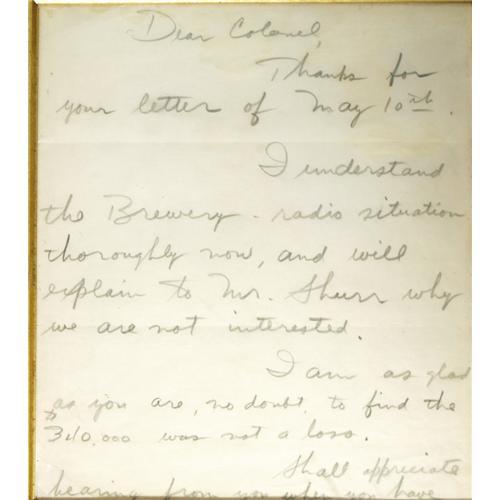 Dear Colonel,
Thanks for
your letter of May 10th.
I understand
the Brewery - radio situation
thoroughly now, and will
explain to Mr. Shurr why
we are not interested.
I am as glad
as you are, no doubt, to find the
was not a loss.
Shall appreciate
hearing from you when you have